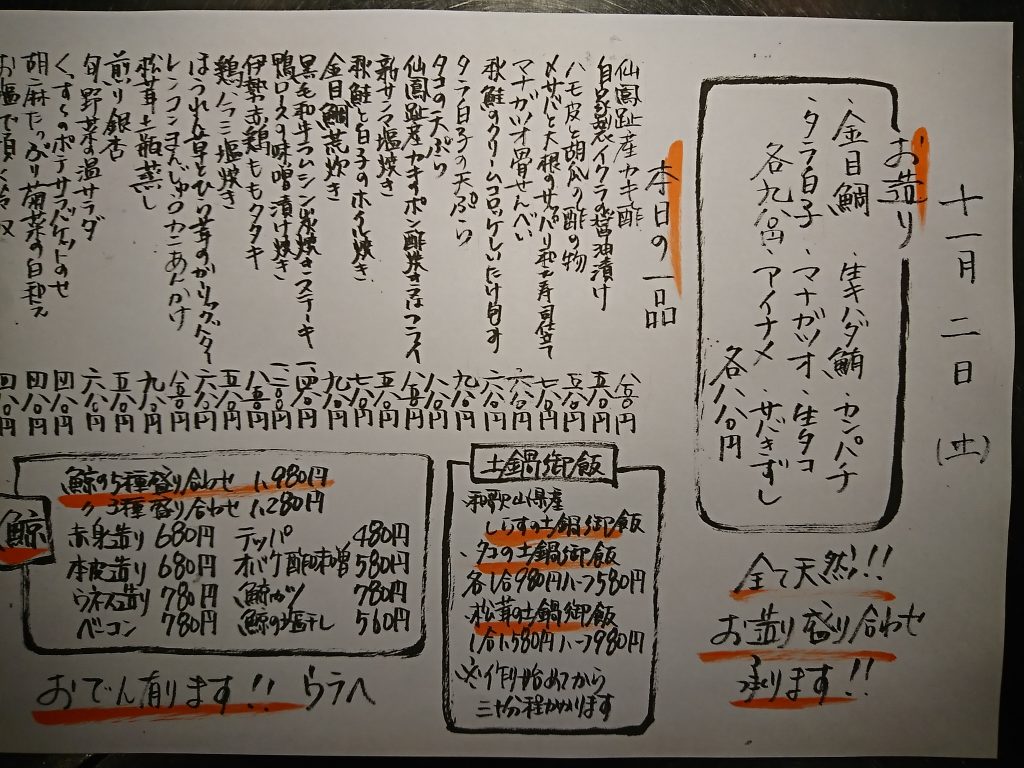 十一月 二日 (土)
お造り
・金目鯛 ・生キハダ鮪 ・カンパチ
・タラ白子 ・マナガツオ ・生タコ
各九八〇円 ・アイナメ ・サバきずし
各八八〇円
全て天然!!
お造り盛り合わせ
承ります!!
本日の一品
仙鳳趾産カキ酢 八八〇円
自家製イクラの醤油漬け
ハモ皮と胡瓜の酢の物
〆サバと大根のサッパリ和え寿司仕立て
マナガツオ骨せんべい
秋鮭のクリームコロッケしいたけ
タラ白子の天ぷら
タコの天ぷら
仙鳳趾産カキのポン酢焼きまたはフライ
新サンマ塩焼き
秋鮭と白子のホイル焼き
金目鯛荒炊き
黒毛和牛ラムシン炭焼きステーキ
鴨ロースの味噌漬け焼き
伊勢赤鶏ももタタキ
鶏ハラミ塩焼き
ほうれん草とひら茸のガーリックバター
レンコンまんじゅうカニあんかけ
松茸土瓶蒸し
煎り銀杏
旬野菜の温サラダ
くずしのポテサラバゲットのせ
胡麻たっぷり菊菜の白和え
お塩で頂く
土鍋御飯
・和歌山県産
しらすの土鍋御飯
・タコの土鍋御飯
各1合980円ハーフ580円
・松茸の土鍋御飯
1合1,580円ハーフ980円
※作り始めてから
三十分程かかります
鯨
鯨の5種盛り合わせ 1,980円
〃 3種盛り合わせ 1,280円
赤身造り 680円 テッパ 480円
本皮造り 680円 オバケ酢味噌 580円
ウネス造り 780円 鯨カツ 780円
ベーコン 780円 鯨の塩干し 560円
おでん有ります!! ウラへ